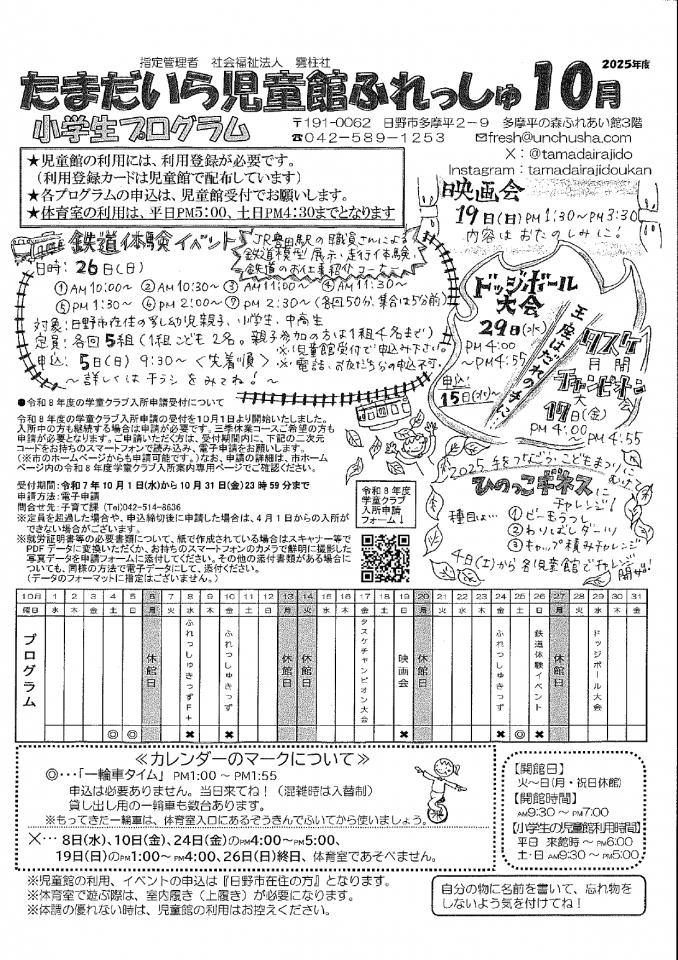 指定管理者 社会福祉法人 雲柱社
2025年度
たまだいら児童館ふれっしゅ10月
小学生プログラム
〒191-0062 日野市多摩平2-9 多摩平の森ふれあい館3階
☎042-589-1253 ✉fresh@unchusha.com
X:@tamadairajido
Instagram:tamadairajidoukan
★児童館の利用には、利用登録が必要です。
(利用登録カードは児童館で配布しています)
★各プログラムの申込は、児童館受付でお願いします。
★体育室の利用は、平日PM5:00、土日PM4:30までとなります
映画会
19日(日)PM1:30~PM3:30
内容はおたのしみに!
鉄道体験イベント
JR豊田駅の職員さんによる
鉄道模型展示、走行体験、
鉄道のお仕事紹介コーナー
日時:26日(日)
①AM10:00~ ②AM10:30~ ③AM11:00~ ④AM11:30~
⑤PM1:30~ ⑥PM2:00~ ⑦PM2:30~(各回50分、集合は5分前)
対象:日野市在住の乳幼児親子、小学生、中高生
定員:各回5組(1組こども2名。親子参加の方は1組4名まで)
申込:5日(日)9:30~<先着順>
※児童館受付で申込み下さい。
※電話、お友だちの申込不可。
~詳しくはチラシをみてね!~
ドッジボール
大会
29日(水)
PM4:00
~PM4:55
申込:
15日(水)~
王座はだれの手に!
タスケ
月間
チャンピオン
大会
17日(金)
PM4:00
~PM4:55
●令和8年度の学童クラブ入所申請受付について
令和8年度の学童クラブ入所申請の受付を10月1日より開始いたしました。
入所中の方も継続する場合は申請が必要です。三季休業コースご希望の方も
申請が必要となります。ご申請いただく方は、受付期間内に、下記の二次元
コードをお持ちのスマートフォンで読み込み、電子申請をお願いします。
(※市のホームページからも申請可能です。)なお、申請の詳細は、市ホーム
ページ内の令和8年度学童クラブ入所案内専用ページでご確認ください。
受付期間:令和7年10月1日(水)から10月31日(金)23時59分まで
申請方法:電子申請
問合せ先:子育て課(Tel)042-514-8636
※定員を超過した場合や、申込締切後に申請した場合は、4月1日からの入所が
できない場合がございます。
※就労証明書等の必要書類について、紙で作成されている場合はスキャナー等で
PDFデータに変換いただくか、お持ちのスマートフォンのカメラで鮮明に撮影した
写真データを申請フォームに添付してください。その他の添付書類がある場合に
ついても、同様の方法で電子データにして、添付ください。
(データのフォーマットに指定はございません。)
令和8年度
学童クラブ
入所申請
フォーム↓
2025 手をつなごう・こどもまつりにむけて
ひのっこギネスに
チャレンジ!
種目は…
①ビー玉うつし
②わりばしダーツ
③キャップ積みチャレンジ
4日(土)から各児童館でチャレンジ
開始!
10月 1 2 3 4 5 6 7 8 9 10 11 12 13 14 15 16 17 18 19 20 21 22 23 24 25 26 27 28 29 30 31
曜日 水 木 金 土 日 月 火 水 木 金 土 日 月 火 水 木 金 土 日 月 火 水 木 金 土 日 月 火 水 木 金
プログラム
休館日
ふれっしゅきっずF+
ふれっしゅきっず
休館日
休館日
タスケチャンピオン大会
映画会
休館日
ふれっしゅきっず
鉄道体験イベント
休館日
ドッジボール大会
◎ ◎ ✖ ✖ ✖ ✖ ◎ ✖
≪カレンダーのマークについて≫
◎…「一輪車タイム」 PM1:00~PM1:55
申込は必要ありません。当日来てね!(混雑時は入替制)
貸し出し用の一輪車も数台あります。
※もってきた一輪車は、体育室入口にあるぞうきんでふいてから使いましょう。
×… 8日(水)、10日(金)、24日(金)のPM4:00~PM5:00、
19日(日)のPM1:00~PM4:00、26日(日)終日、体育室であそべません。
【開館日】
火~日(月・祝日休館)
【開館時間】
AM9:30~PM7:00
【小学生の児童館利用時間】
平日 来館時~PM6:00
土・日 AM9:30~PM5:00
※児童館の利用、イベントの申込は『日野市在住の方』となります。
※体育室で遊ぶ際は、室内履き(上履き)が必要になります。
※体調の優れない時は、児童館の利用はお控えください。
自分の物に名前を書いて、忘れ物を
しないよう気を付けてね!